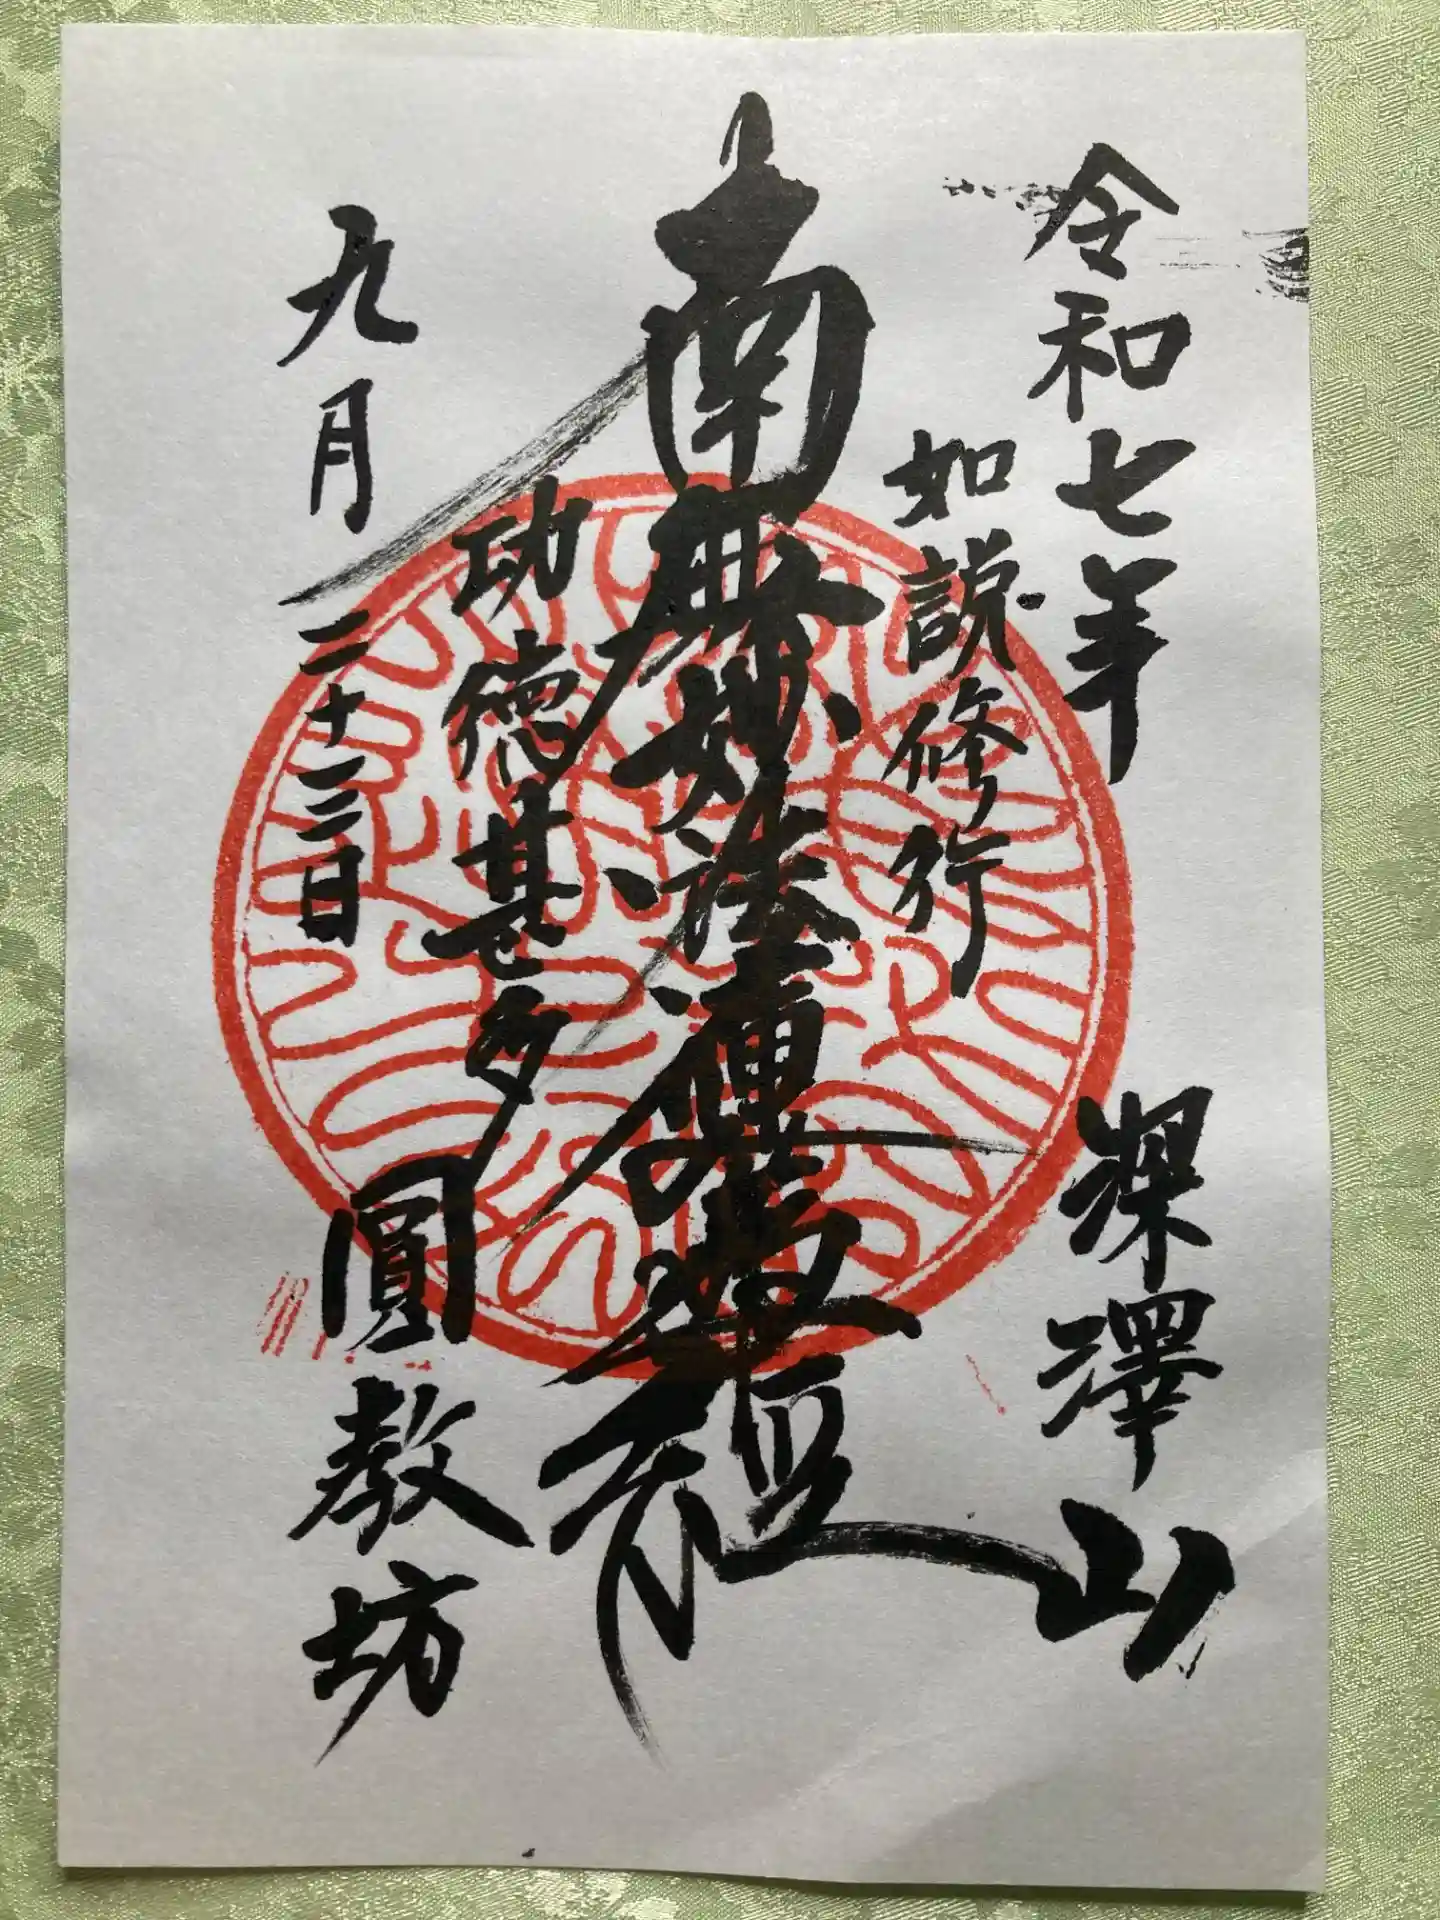 令和七年
深澤山
如説修行
南無妙法蓮華経
功徳甚多
九月二十三日
圓教坊